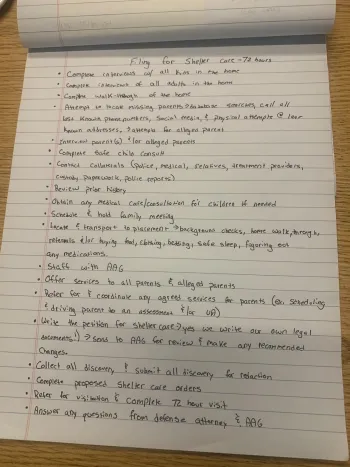 Filing for Shelter care - 72 hours
• Complete interviews w/ all kids in the home
• Complete interviews of all adults in the home
• Complete walk-through of the home
• Attempt to locate missing parents → database searches, call all
last known phone numbers, social media, & physical attempts @ last
known addresses, → attempts for alleged parent
• Interview parent(s) &/or alleged parents
• Complete safe child consult
• Contact collaterals (police, medical, relatives, treatment providers,
custody paperwork, police reports)
• Review prior history
• Obtain any medical care/consultation for children if needed
• Schedule & hold family meeting
• Locate & transport to placement → background checks, home walk through,
referrals &/or buying food, clothing, bedding, safe sleep, figuring out
any medications.
• Staff with AAG
• Offer services to all parents & alleged parents
• Refer for & coordinate any agreed services for parents (ex. scheduling
& driving parent to an assessment &/or UA)
• Write the petition for shelter care → yes we write our own legal
documents!) → send to AAG for review & make any recommended
changes.
• Collect all discovery & submit all discovery for redaction
• Complete proposed shelter care orders
• Refer for visitation & complete 72 hour visit
• Answer any questions from defense attorney & AAG